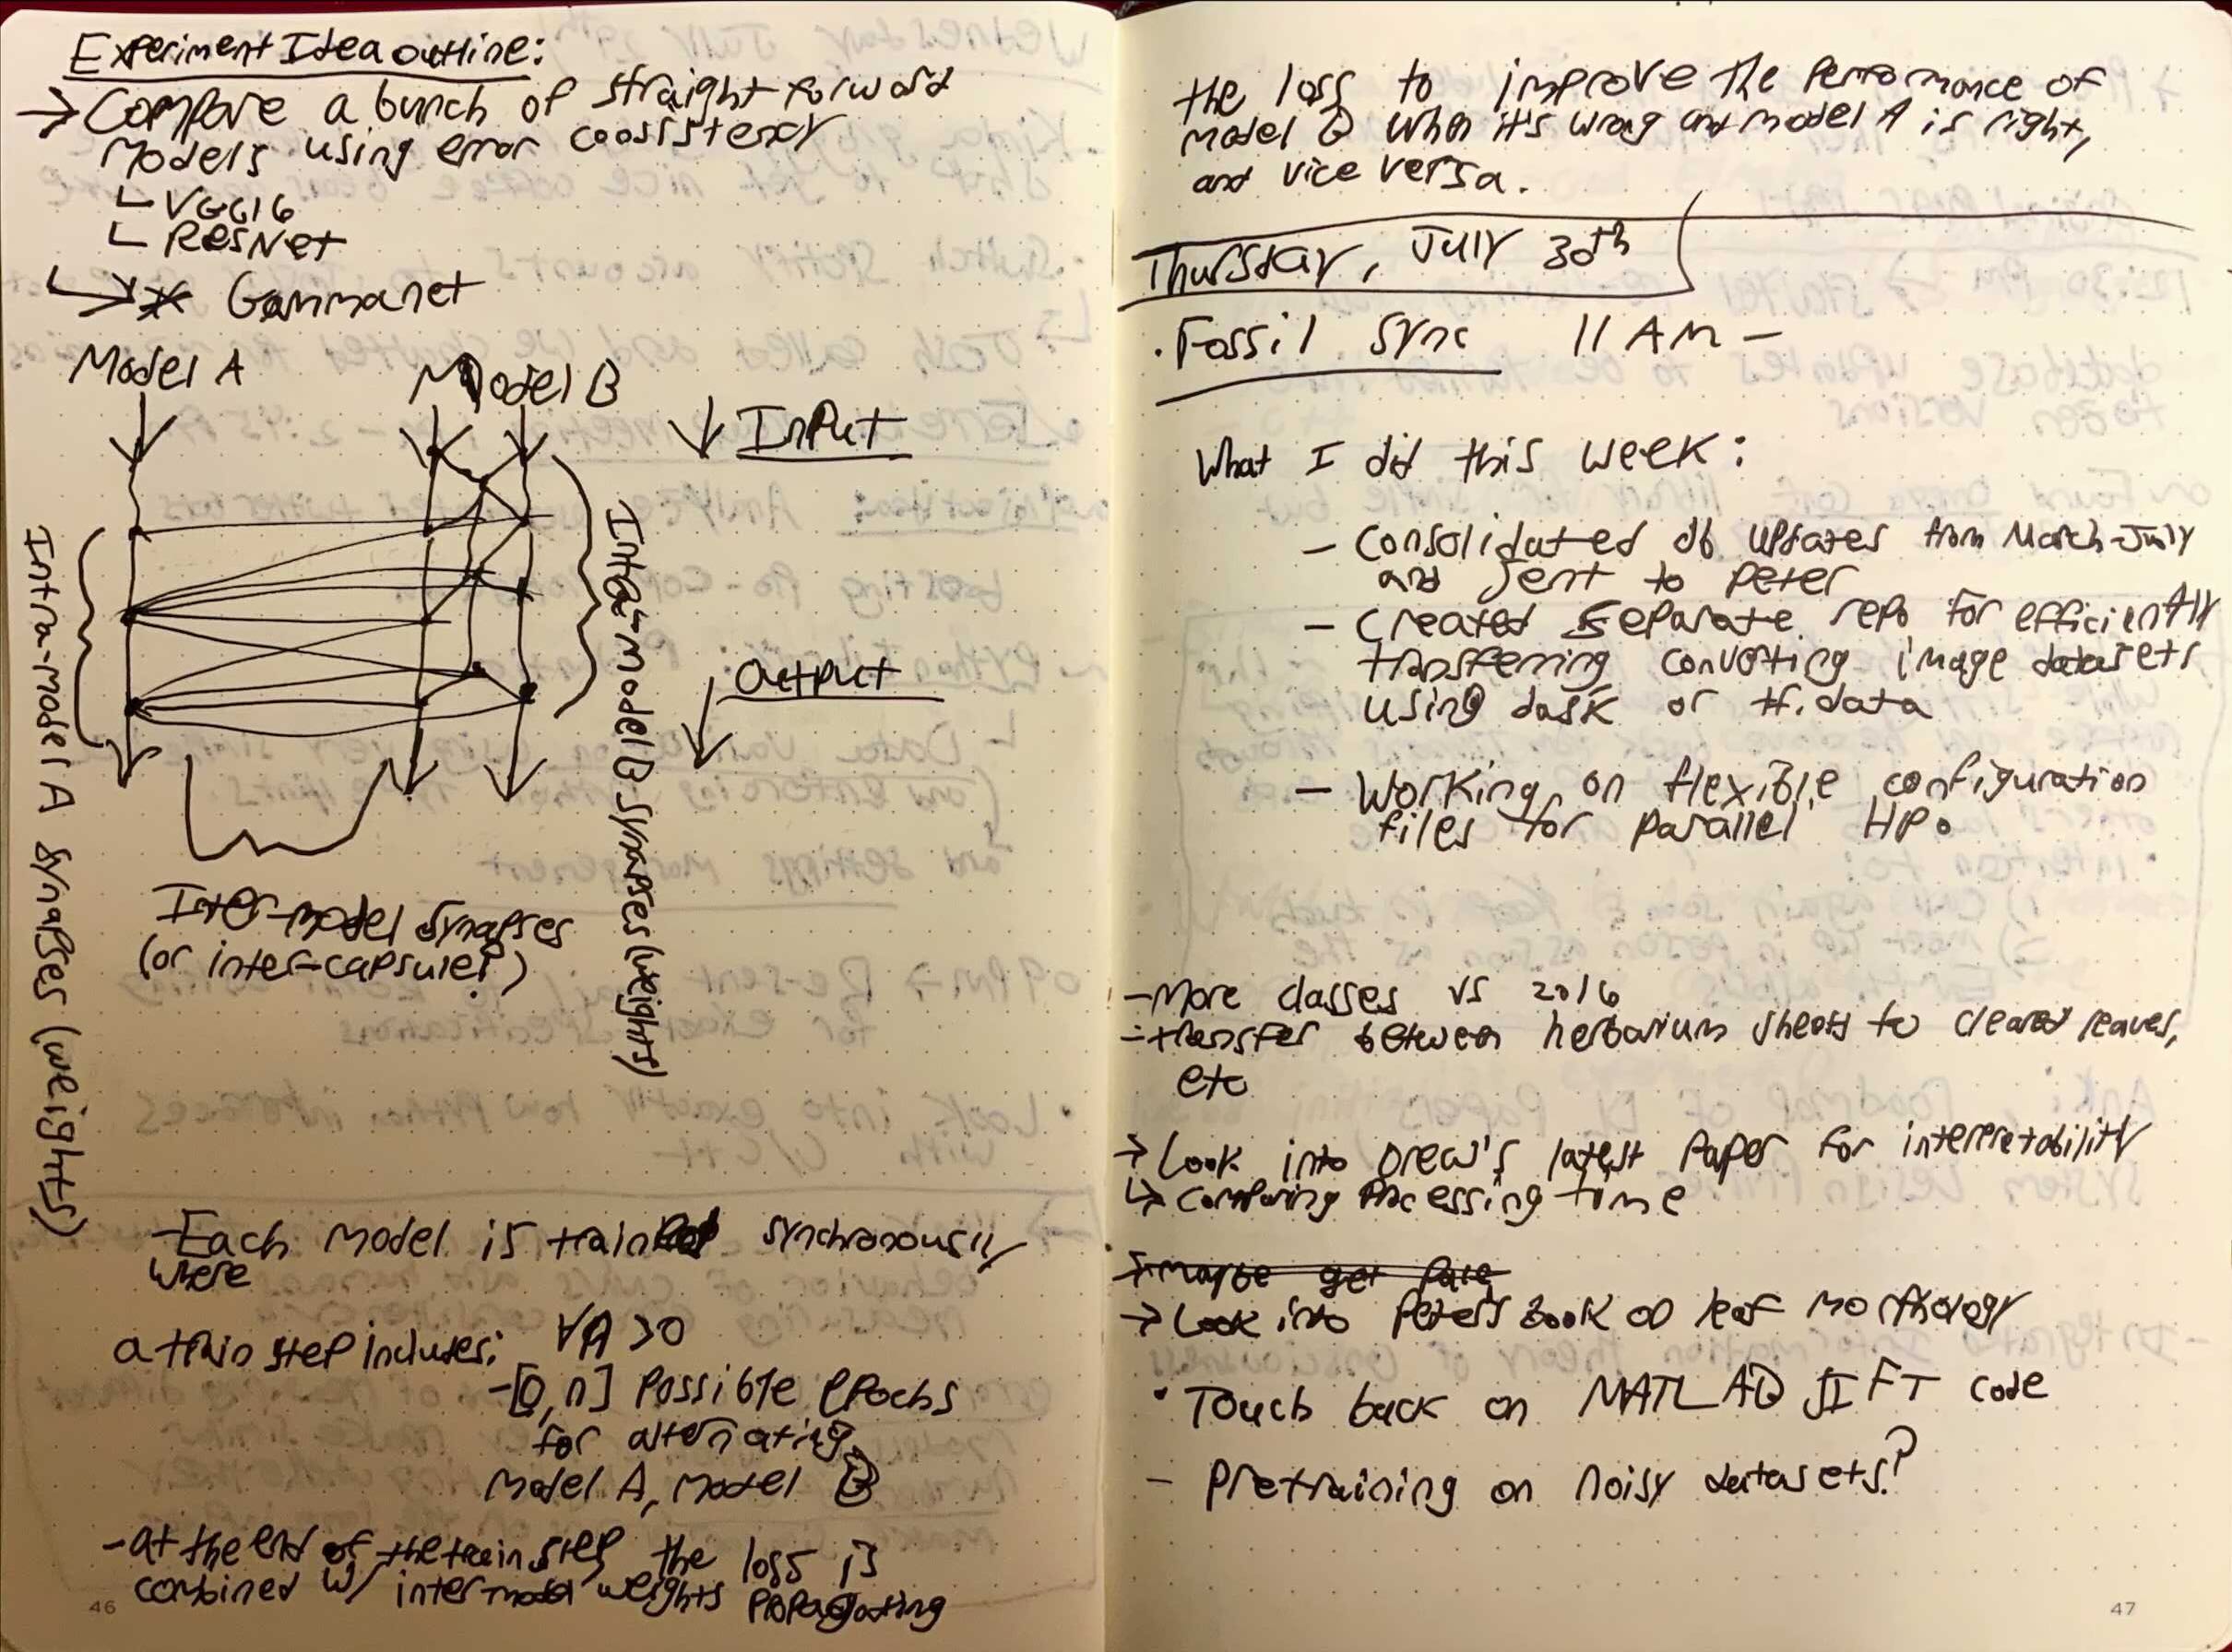 Experiment Idea outline:
→ Compare a bunch of straight forward
models using error consistency
↳ VGG16
↳ ResNet
↳ * Gammanet
Model A
Model B
↓ Input
Output
Intra-model A synapses (weights)
Intra-model B synapses (weights)
Inter-model synapses
(or inter-capsule?)
- Each model is trained synchronously
where
a train step includes: ∀A >0
- [0, n] possible epochs
for alternating
Model A, Model B
- at the end of the train step the loss is
combined w/ inter model weights propagating
46
the loss to improve the performance of
model B when it's wrong and model A is right,
and vice versa.
Thursday, July 30th
· Fossil Sync 11 AM -
What I did this week:
- Consolidated db updates from March-July
and sent to Peter
- Created separate repo for efficiently
transferring converting image datasets
using dask or tf.data
- Working on flexible configuration
files for parallel HPO
- More classes vs 2016
- transfer between herbarium sheets to cleared leaves,
etc
→ Look into Drew's latest paper for interpretability
↳ comparing processing time
maybe get
→ Look into Peter's book on leaf morphology
· Touch back on MATLAB SIFT code
- Pretraining on noisy datasets?
47